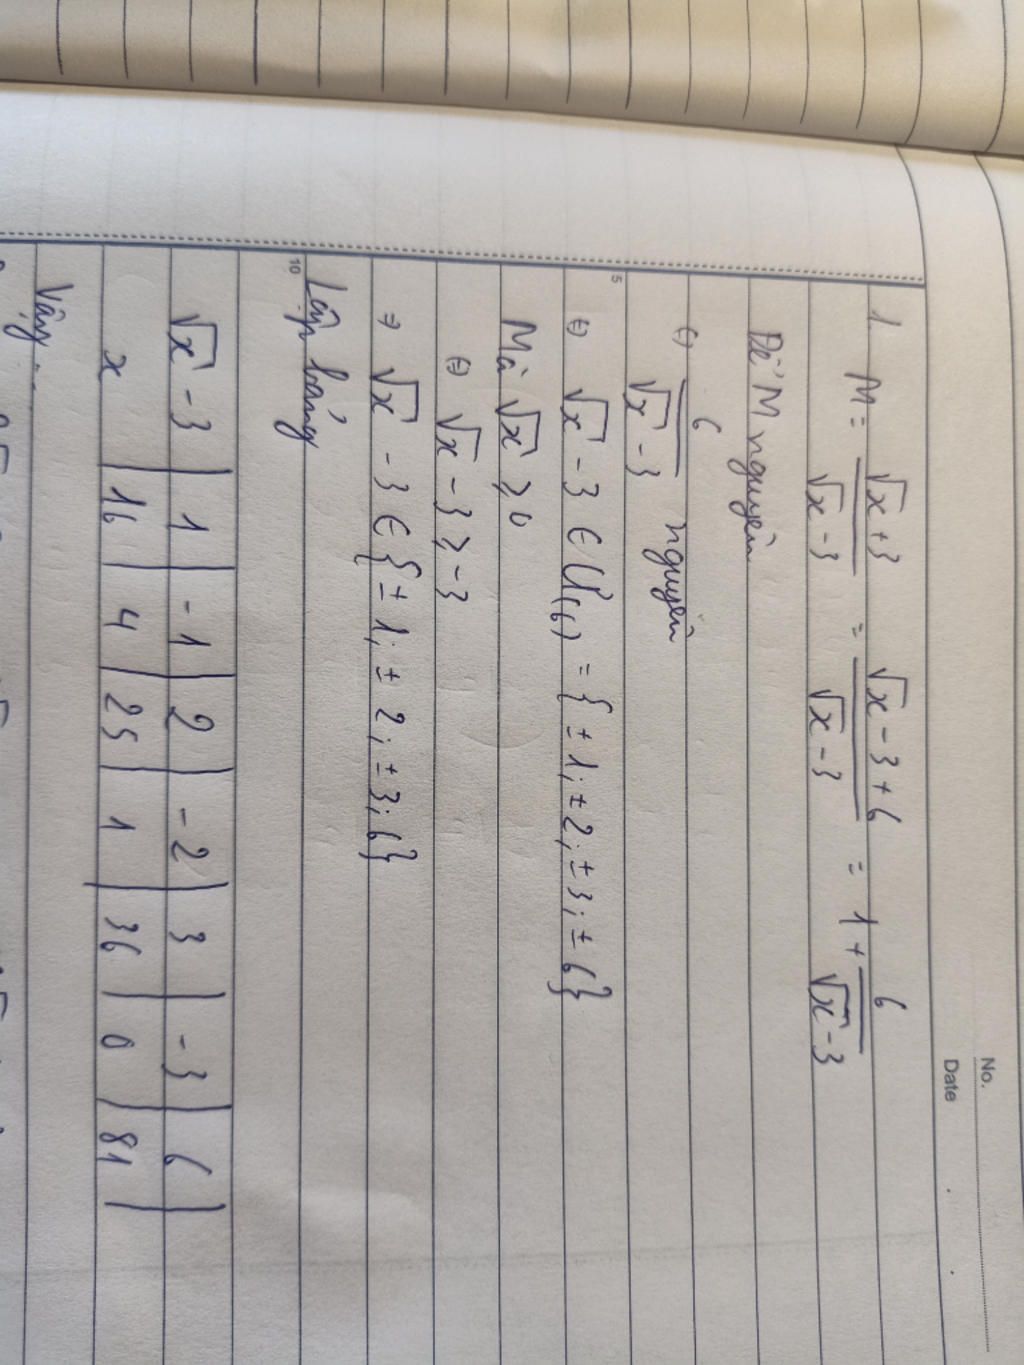 No.
Date
1 M = (√x + 3)/(√x - 3) = (√x - 3 + 6)/(√x - 3) = 1 + 6/(√x - 3)
Để M nguyên
(=) 6/(√x - 3) nguyên
5
(=) √x - 3 ∈ Ư(6) = { ± 1; ± 2; ± 3; ± 6}
Mà √x ≥ 0
(=) √x - 3 ≥ -3
⇒ √x - 3 ∈ { ± 1; ± 2; ± 3; 6}
10
Lập bảng
√x - 3 | 1 | -1 | 2 | -2 | 3 | -3 | 6 |
x | 16 | 4 | 25 | 1 | 36 | 0 | 81 |
Vậy ...